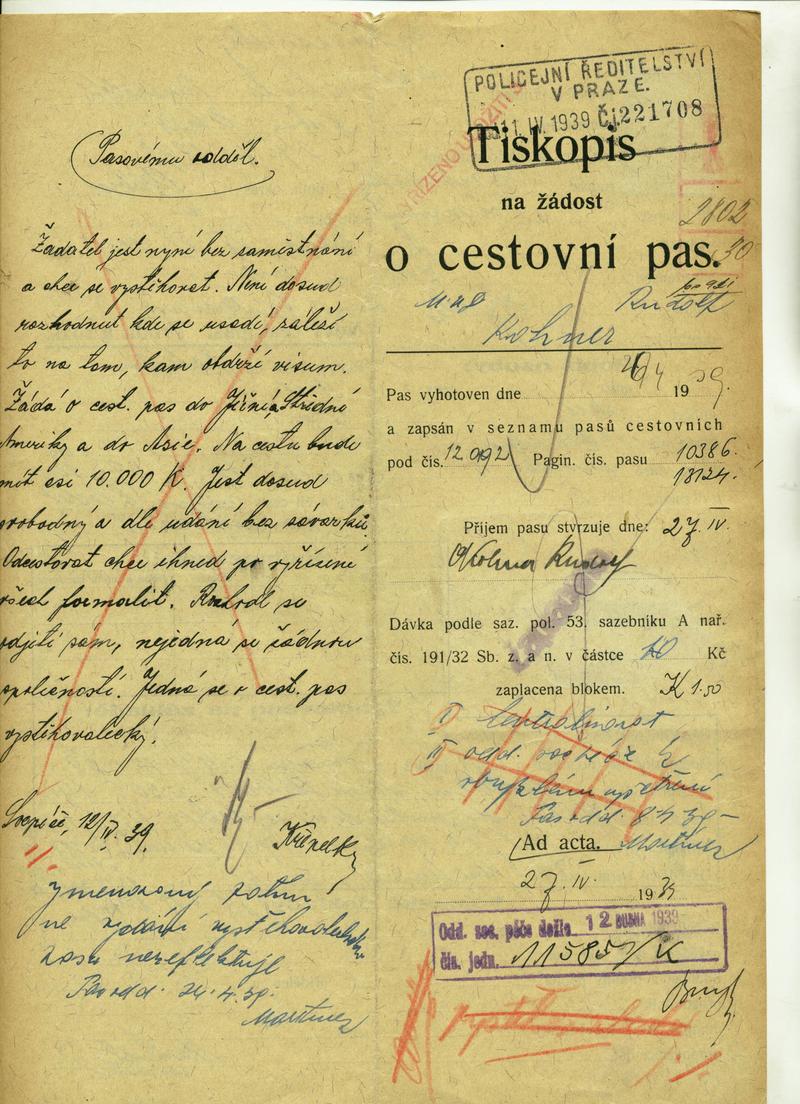 Pasovému odděl.
Žadatel jest nyní bez zaměstnání
a chce se vystěhovat. Není dosud
rozhodnut kde se usadí, záleží
to na tom, kam obdrží visum.
Žádá o cest. pas do Jižní a Střední
Ameriky a do Asie. Na cestu bude
mít asi 10.000 K. Jest dosud
svobodný a dle udání bez závazků.
Odcestovat chce ihned po vyřízení
všech formalit. Rozhodl se
odjeti sám, nejedná se žádnou
společností. Jedná se o cest. pas
vystěhovalecký.
12/IV. 39.
Křepelka
Jmenovaný zatím
na vydání vystěhovaleckého
pasu nereflektuje
Pas odd. 24.4.39.
Martinez
POLICEJNÍ ŘEDITELSTVÍ
V PRAZE.
11. IV. 1939 Čj. 221708
Tiskopis
na žádost
2802
30
o cestovní pas.
Rudolf
Kohner
Pas vyhotoven dne 26/4 1939.
a zapsán v seznamu pasů cestovních
pod čís. 12092 Pagin. čís. pasu 10386
13124.
Příjem pasu stvrzuje dne: 27. IV.
Kohner Rudolf
Dávka podle saz. pol. 53. sazebníku A nař.
čís. 191/32 Sb. z. a n. v částce 10 Kč
zaplacena blokem. K 1.50
I
II odd. soc. péče
Pas odd. 8 4 39
Ad acta. Martinez
27. IV. 1939
Odd. soc. péče došlo 12 DUBNA 1939
čís. jedn. 11585/K